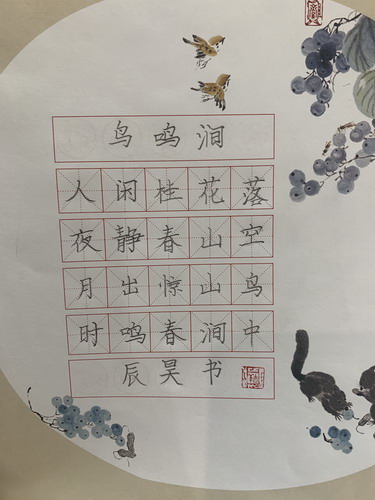 鸟鸣涧
人闲桂花落
夜静春山空
月出惊山鸟
时鸣春涧中
辰昊书